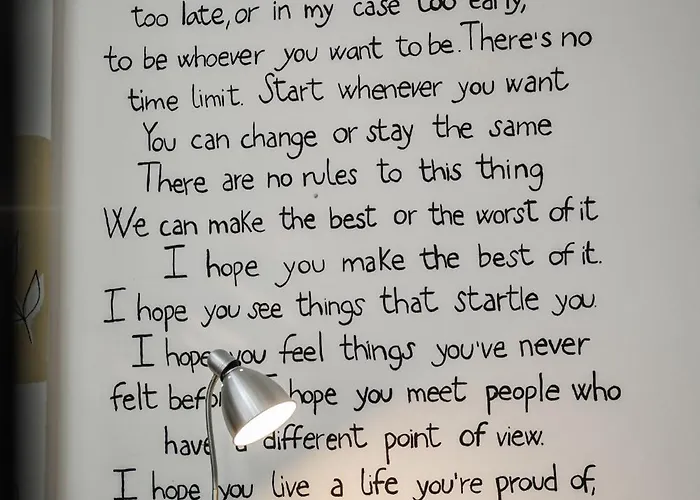 too late, or in my case too early,
to be whoever you want to be. There's no
time limit. Start whenever you want
You can change or stay the same
There are no rules to this thing
We can make the best or the worst of it
I hope you make the best of it.
I hope you see things that startle you.
I hope you feel things you've never
felt hope you meet people who
have different point of view.
I hope you live a life you're proud of,